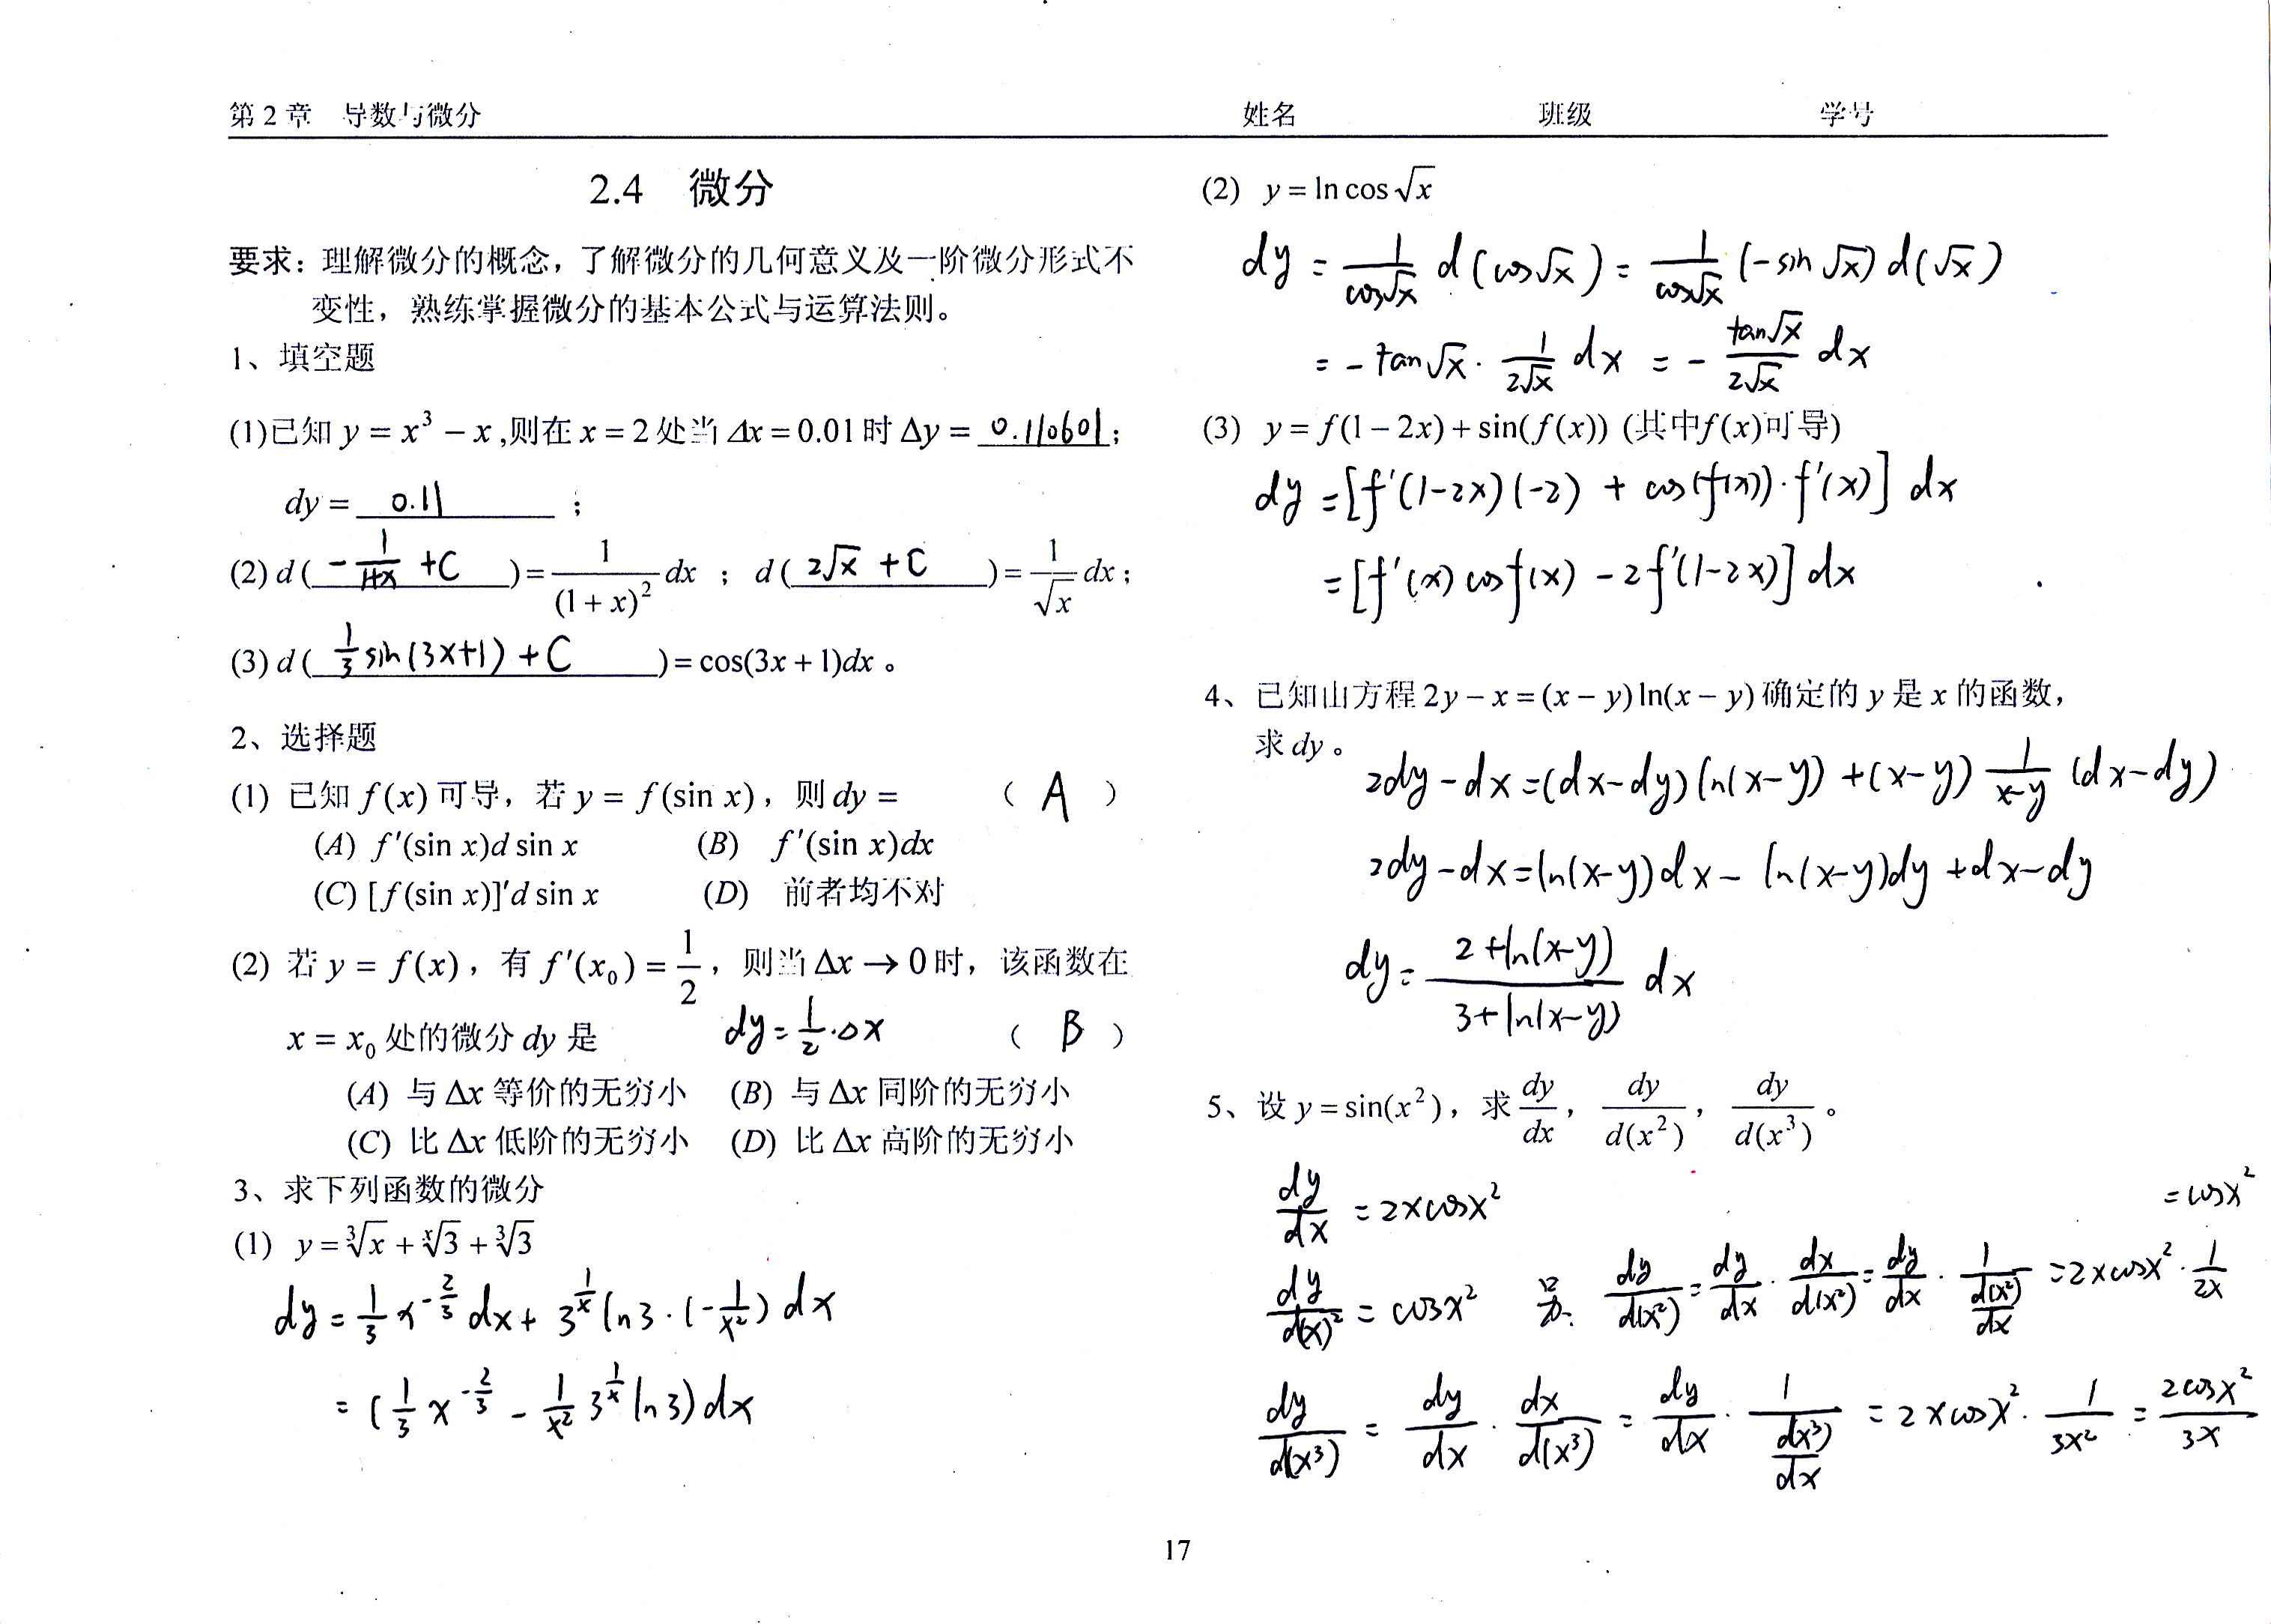 第 2 章 导数与微分 姓名 班级 学号
2.4 微分
要求：理解微分的概念，了解微分的几何意义及一阶微分形式不
变性，熟练掌握微分的基本公式与运算法则。
1、填空题
(1)已知 y = x³ − x ,则在 x = 2 处当 Δx = 0.01 时 Δy = 0.110601 ;
dy = 0.11 ;
(2) d ( −1/(1+x) + C ) = 1/(1 + x)² dx ; d ( 2√x + C ) = 1/√x dx ;
(3) d ( 1/3 sin(3x+1) + C ) = cos(3x + 1)dx 。
2、选择题
(1) 已知 f(x) 可导，若 y = f(sin x)，则 dy = （ A ）
(A) f′(sin x)d sin x (B) f′(sin x)dx
(C) [f(sin x)]′d sin x (D) 前者均不对
(2) 若 y = f(x)，有 f′(x₀) = 1/2，则当 Δx → 0 时，该函数在
x = x₀ 处的微分 dy 是 dy = 1/2·Δx （ B ）
(A) 与 Δx 等价的无穷小 (B) 与 Δx 同阶的无穷小
(C) 比 Δx 低阶的无穷小 (D) 比 Δx 高阶的无穷小
3、求下列函数的微分
(1) y = ∛x + ˣ√3 + ∛3
dy = 1/3 x^(-2/3) dx + 3^(1/x) ln3·(−1/x²) dx
= (1/3 x^(-2/3) − 1/x² 3^(1/x) ln3) dx
(2) y = ln cos √x
dy = 1/cos√x d(cos√x) = 1/cos√x (−sin√x) d(√x)
= −tan√x · 1/(2√x) dx = − tan√x/(2√x) dx
(3) y = f(1 − 2x) + sin(f(x)) (其中f(x)可导)
dy = [f′(1−2x)(−2) + cos(f(x))·f′(x)] dx
= [f′(x) cosf(x) − 2f′(1−2x)] dx
4、已知由方程 2y − x = (x − y) ln(x − y) 确定的 y 是 x 的函数，
求 dy 。
2dy − dx = (dx−dy) ln(x−y) + (x−y) 1/(x−y) (dx−dy)
2dy − dx = ln(x−y)dx − ln(x−y)dy + dx − dy
dy = (2+ln(x−y))/(3+ln(x−y)) dx
5、设 y = sin(x²)，求 dy/dx，dy/d(x²)，dy/d(x³)。
dy/dx = 2xcosx²
= cosx²
dy/d(x)² = cosx² 另: dy/d(x²) = dy/dx · dx/d(x²) = dy/dx · 1/(d(x²)/dx) = 2xcosx² · 1/2x
dy/d(x³) = dy/dx · dx/d(x³) = dy/dx · 1/(d(x³)/dx) = 2xcosx² · 1/3x² = 2cosx²/3x
17